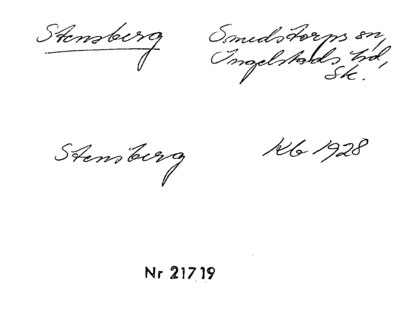 Stensberg Smedstorps sn,
Ingelstads hd,
Sk.
Stensberg Kb 1928
Nr 21719